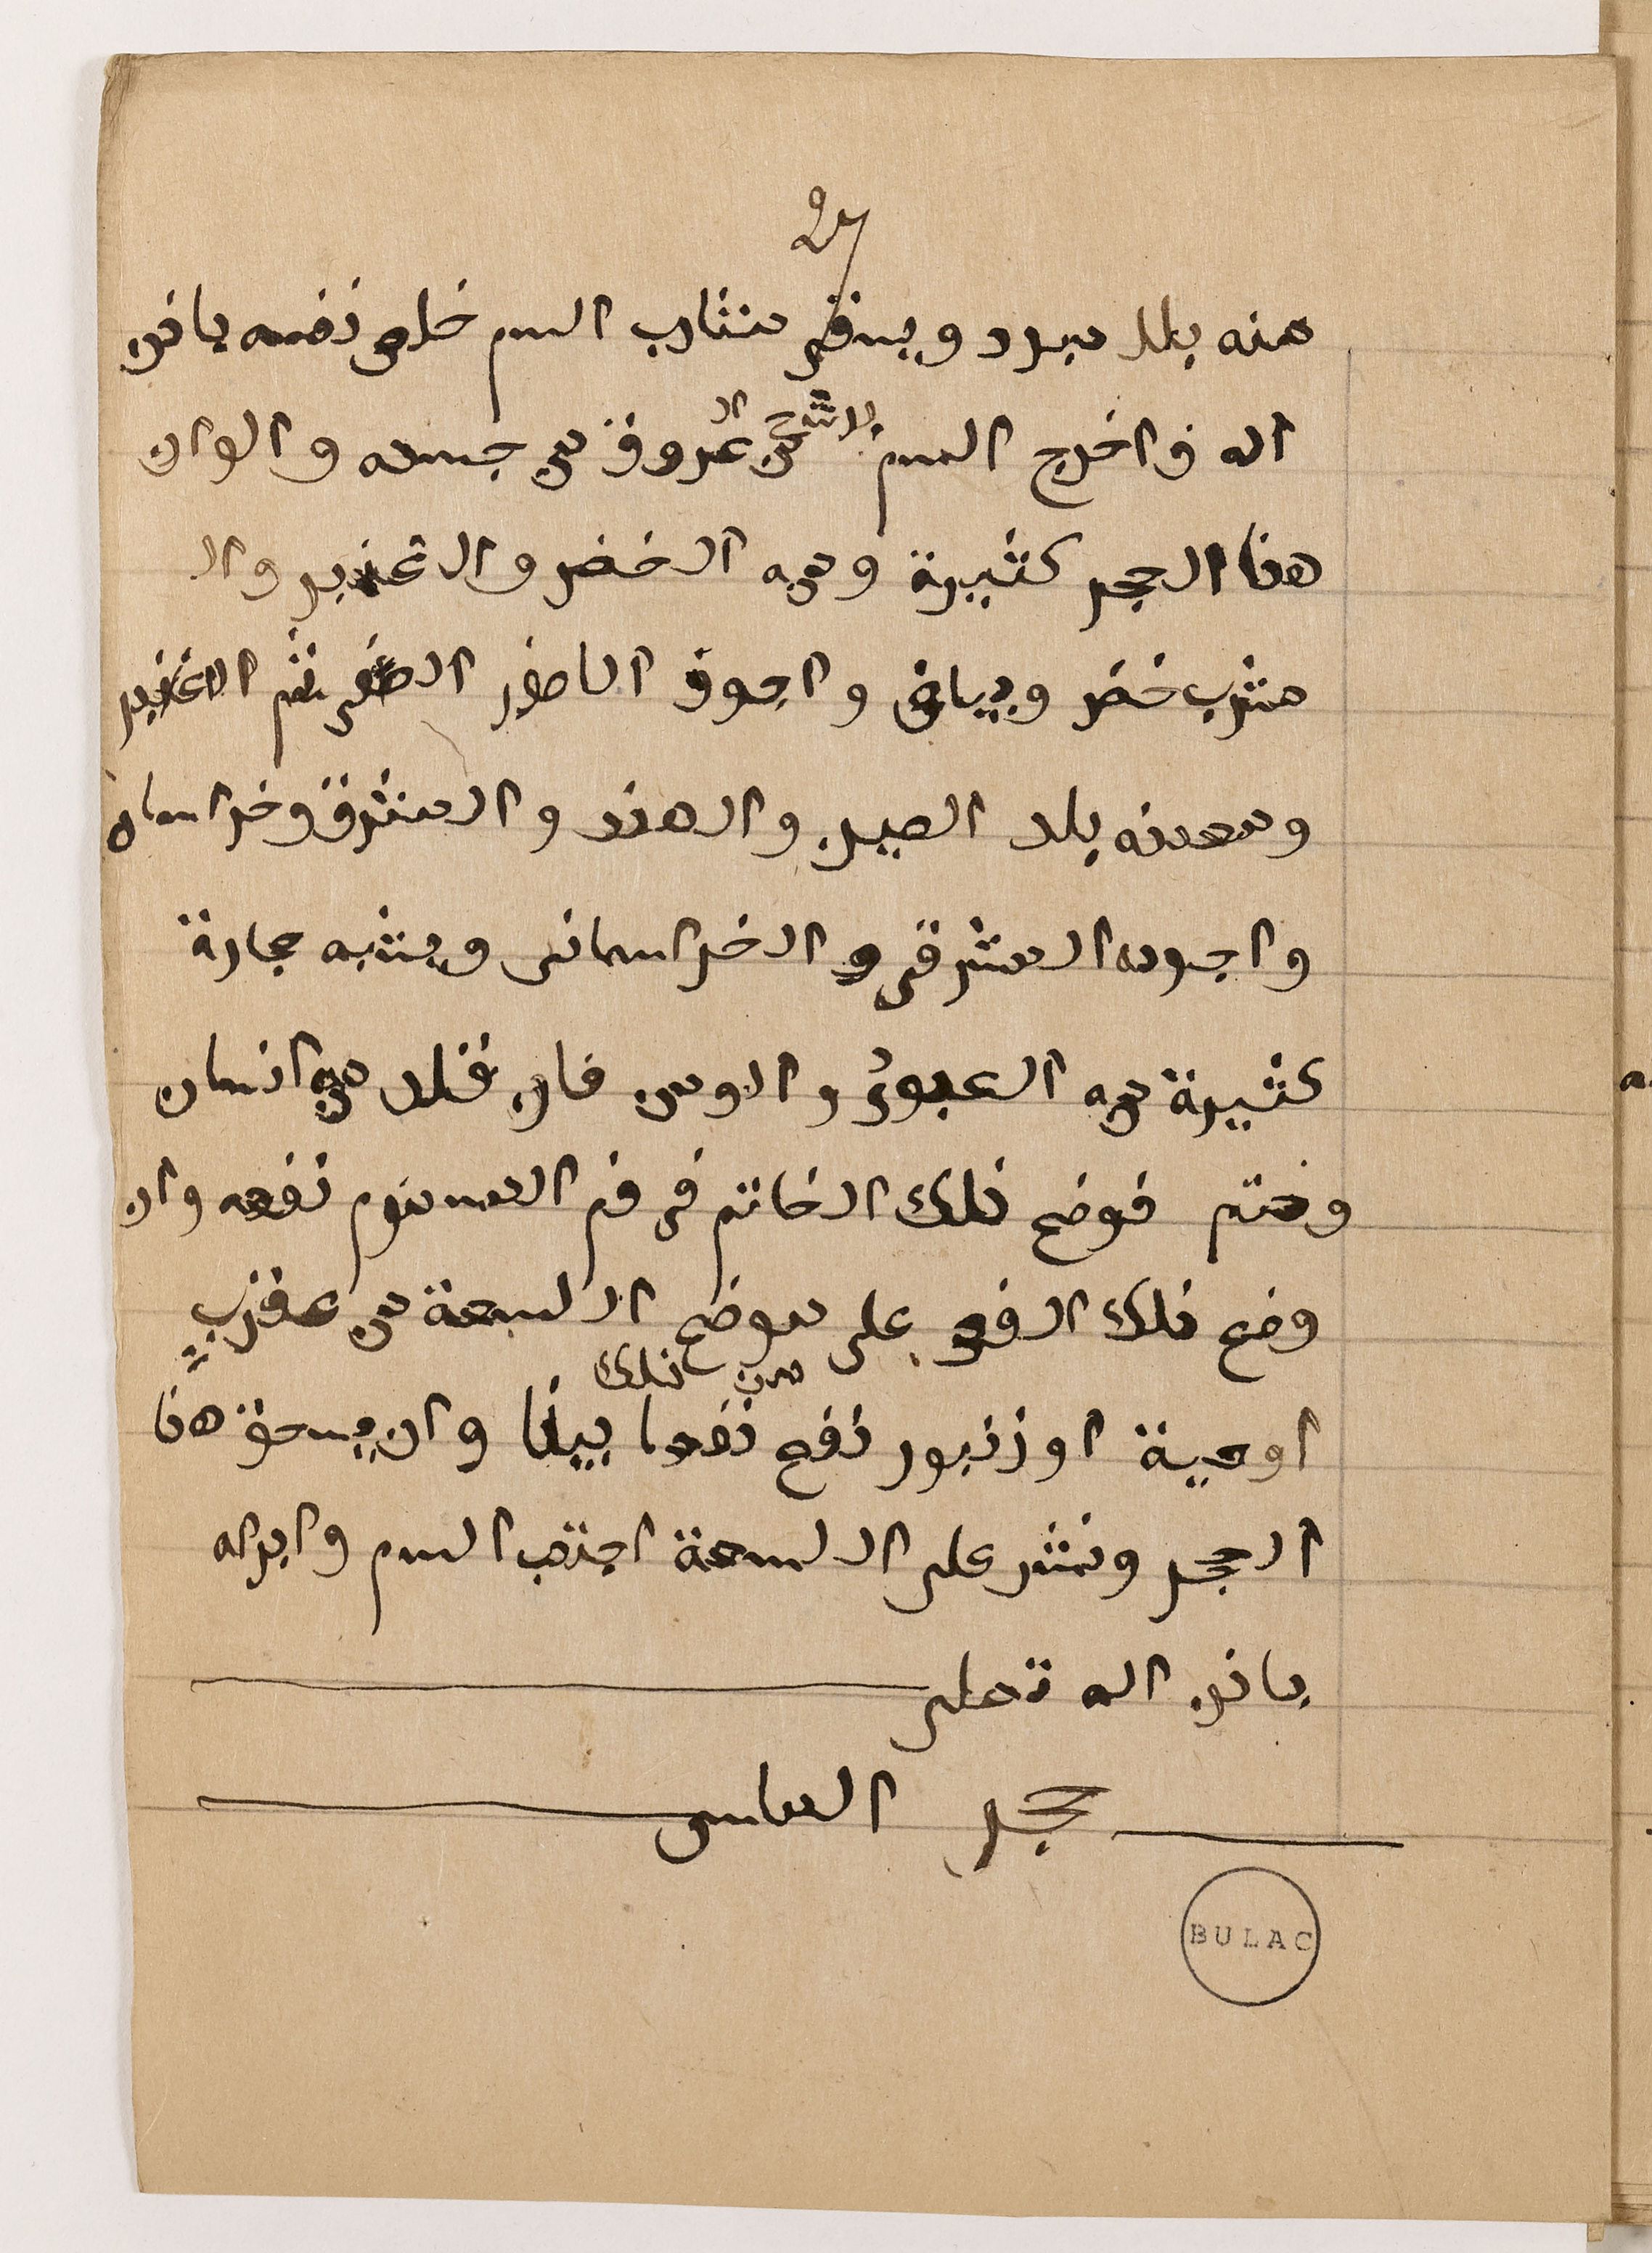 27
منه بلا مبرد ويسقى شارب السم خلص نفسه باذن
الله واخرج السم بالرشح من العروق من جسده والوان
هذا الحجر كثيرة ومنه الاخضر والاغبر والا
مشرب خضر وبياض واجود الاصفر ثم الاغبر
ومعدنه بلد الصين والهند والمشرق وخراسان
واجوده المشرقي والخراساني ويشبه حجارة
كثيرة منه فان قلد منه انسان
وختم فوضع ذلك الخاتم في فم المسموم نفعه وان
وضع ذلك الفص على موضع اللسعة من عقرب
اوحية اوزنبور نفع من ذلك نفعا بينا وان يسحق هذا
الحجر ونثر على اللسعة اجتذب السم وابراه
باذن الله تعلى
حجر الماس
BULAC